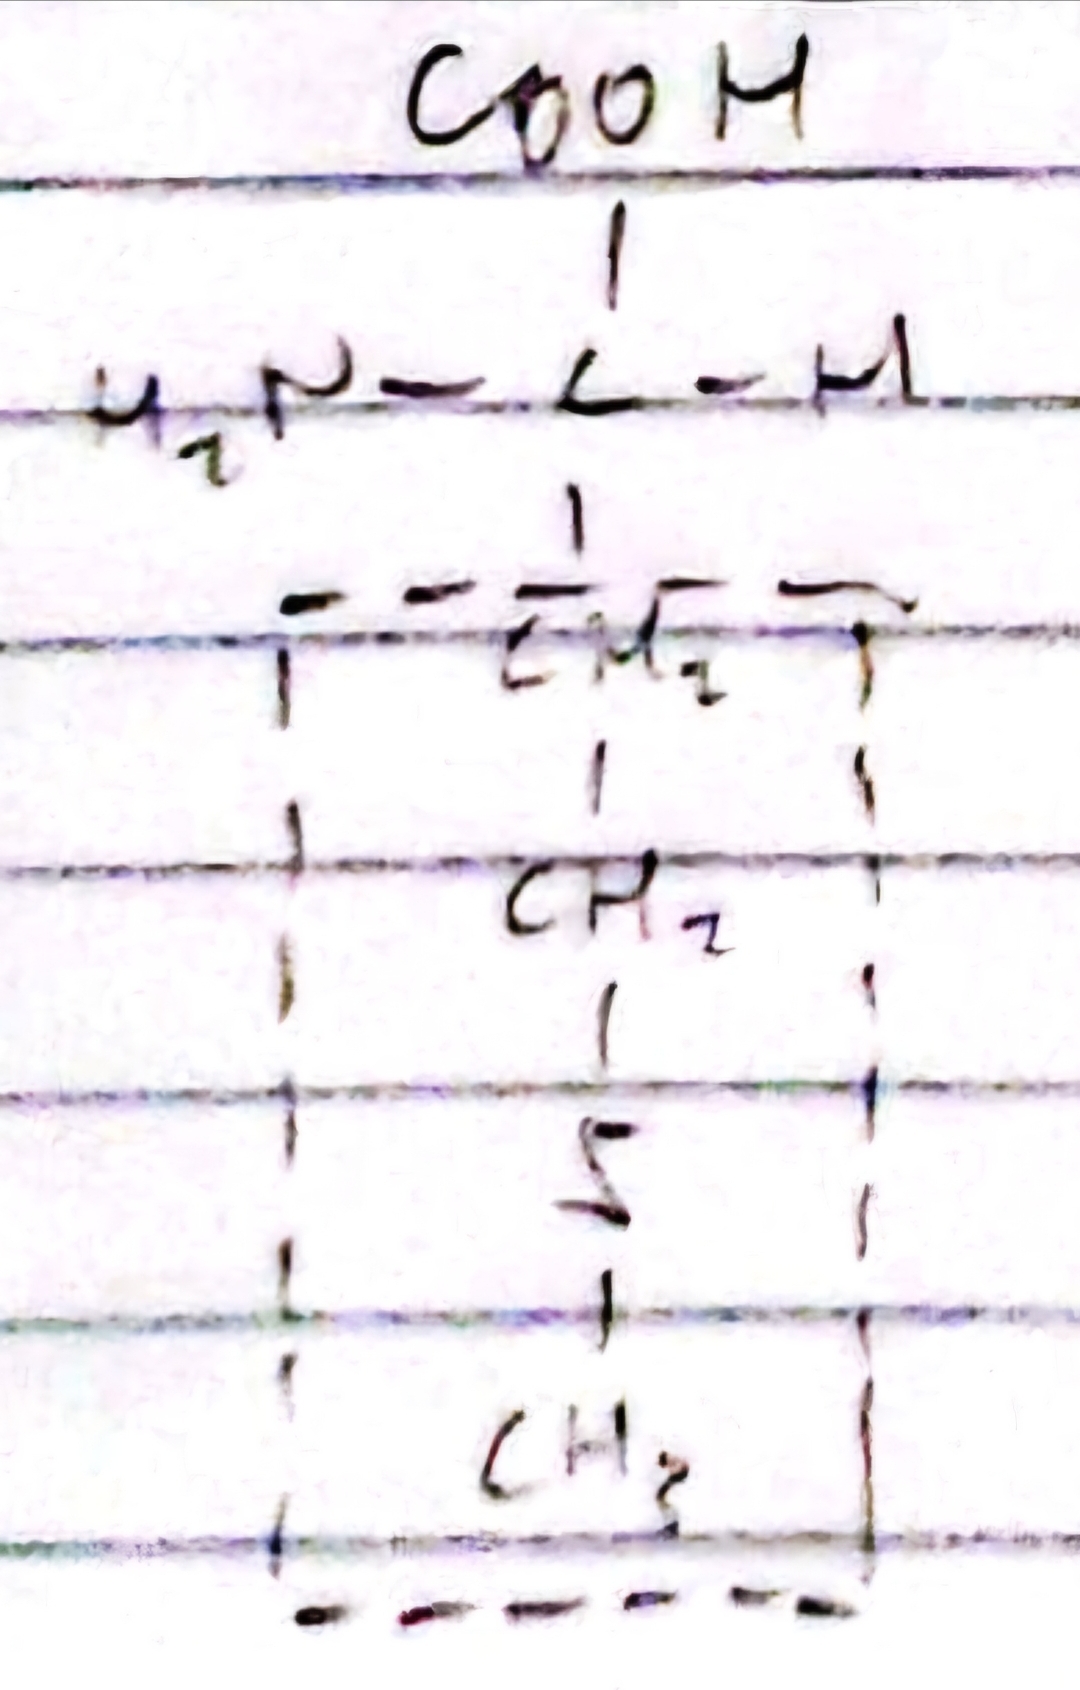 COOH
|
H₂N - C - H
|
CH₂
|
CH₂
|
S
|
CH₃